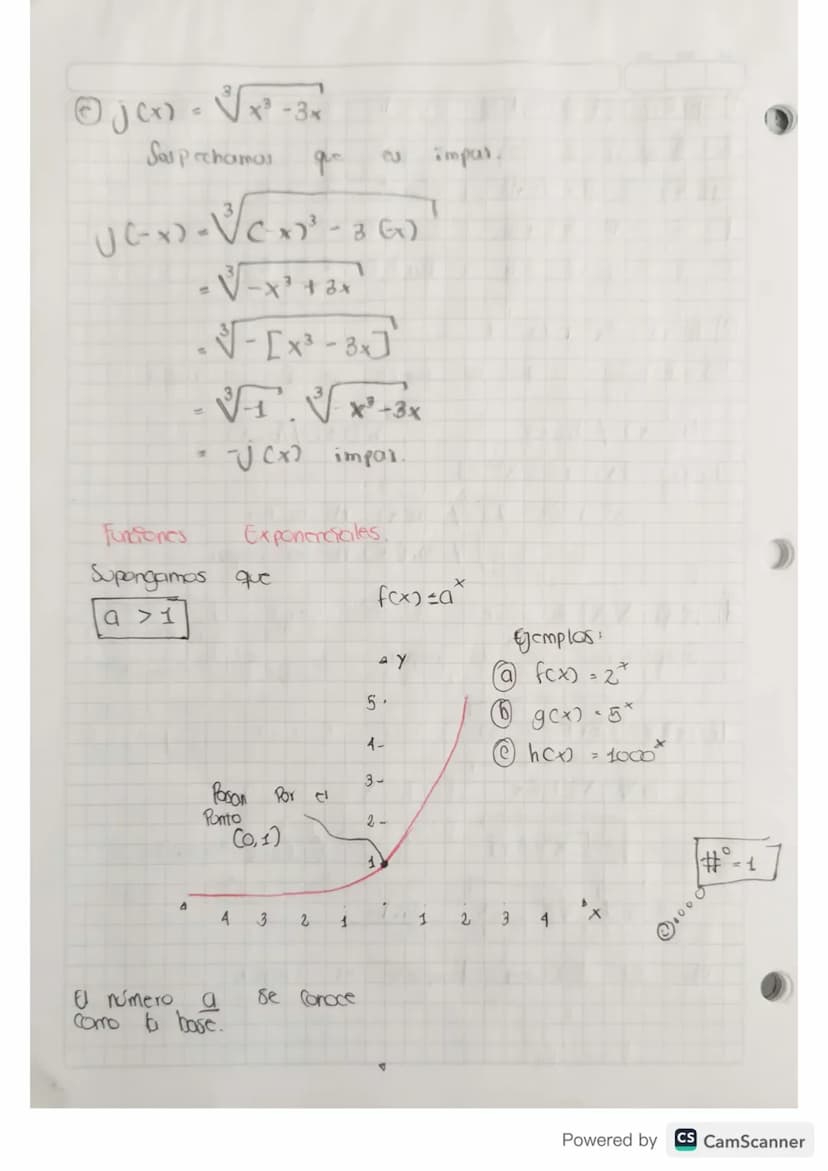 ⓔ j(x) = ∛(x³ - 3x)
Sospechamos que es impar.
J(-x) = ∛((-x)³ - 3(-x))
= ∛(-x³ + 3x)
= ∛(-[x³ - 3x])
= ∛-1 · ∛(x³ - 3x)
= -J(x) impar.
Funciones Exponenciales.
Supongamos que
a > 1
f(x) = a^x
Ejemplos:
ⓐ f(x) = 2^x
ⓑ g(x) = 5^x
ⓒ h(x) = 1000^x
y
5
4
3
2
1
Pasan Por el
Punto
(0,1)
#⁰ = 1
4 3 2 1 1 2 3 4 x
El número a se conoce
como la base.
Powered by CS CamScanner